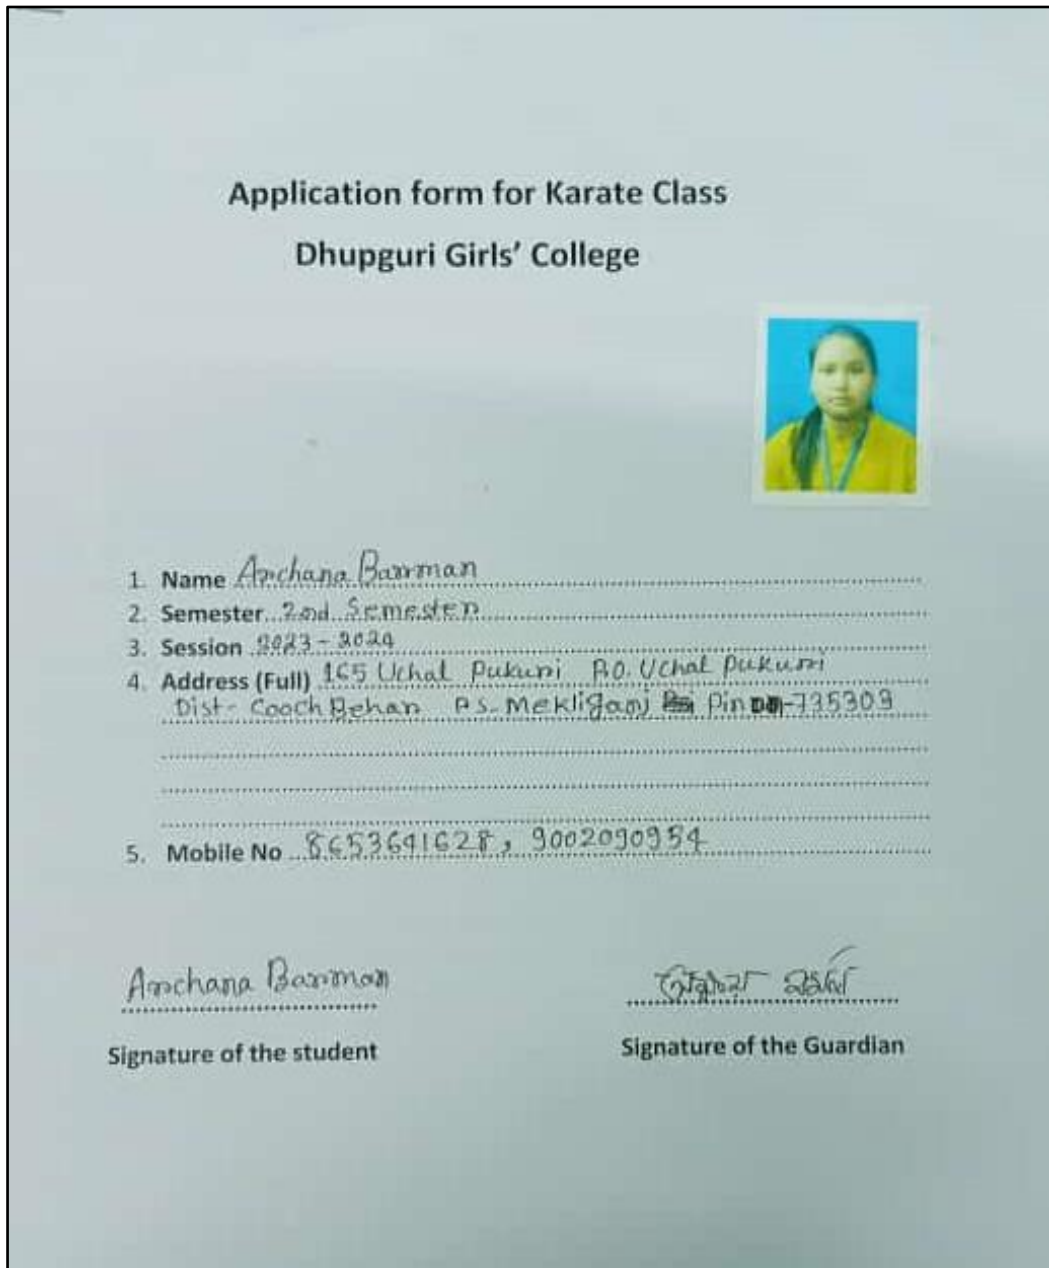 Application form for Karate Class
Dhupguri Girls' College
1. Name Archana Barman
2. Semester 2nd Semester
3. Session 2023-2024
4. Address (Full) 165 Uchal Pukuri P.O. Uchal Pukuri
Dist- Cooch Behar P.S. Mekliganj Pin -735303
5. Mobile No 8653641628, 9002090954
Archana Barman
Signature of the student
Signature of the Guardian